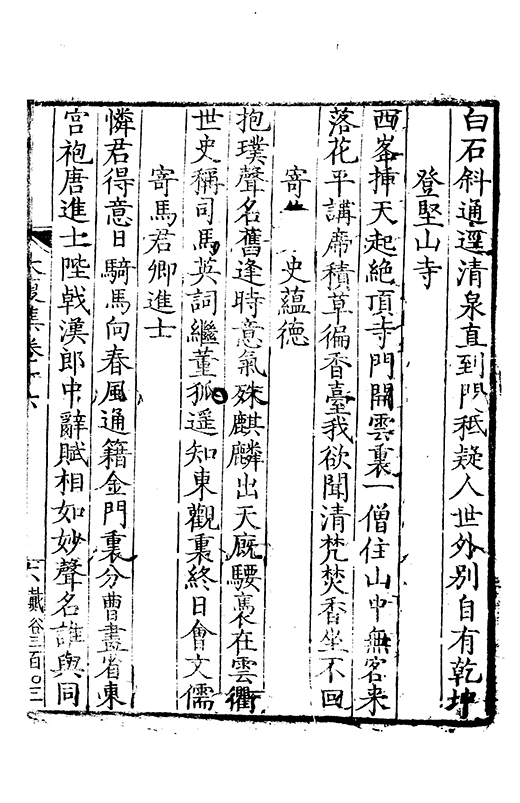 白石斜通逕清泉直到門秪疑人世外別自有乾坤
登堅山寺
西峯揷天起絶頂寺門開雲裏一僧住山中無客来
落花平講席積草徧香臺我欲聞清梵焚香坐不囘
寄 史蘊德
抱璞聲名舊逢時意氣殊麒麟出天厩騕褭在雲衢
世史稱司馬英詞繼董狐遥知東觀裏終日會文儒
寄馬君卿進士
憐君得意日騎馬向春風通籍金門裏分曹畫省東
宫袍唐進士陛戟漢郎中辭賦相如妙聲名誰與同
集卷十六
八 戴谷三百〇三